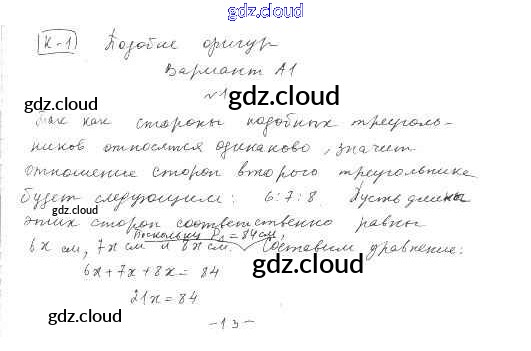 gdz.cloud
К-1 Подобие фигур
Вариант А1
gdz.cloud
№1
gdz.cloud gdz.cloud
Так как стороны подобных треуголь-
ников относятся одинаково, значит
отношение сторон второго треугольника
будет следующим: 6:7:8. Пусть длины
gdz.cloud
этих сторон соответственно равны
Поскольку P = 84см,
6x см, 7x см и 8x см. Составим уравнение:
gdz.cloud gdz.cloud
6x+7x+8x = 84
21x = 84
gdz.cloud gdz.cloud
-13-